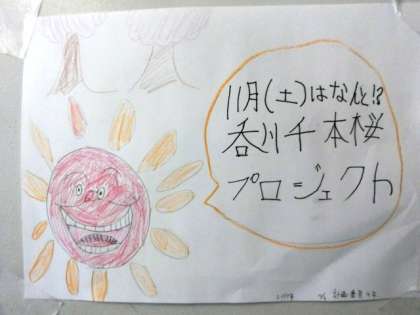 11月(土)はなんと!?
呑川千本桜
プロジェクト